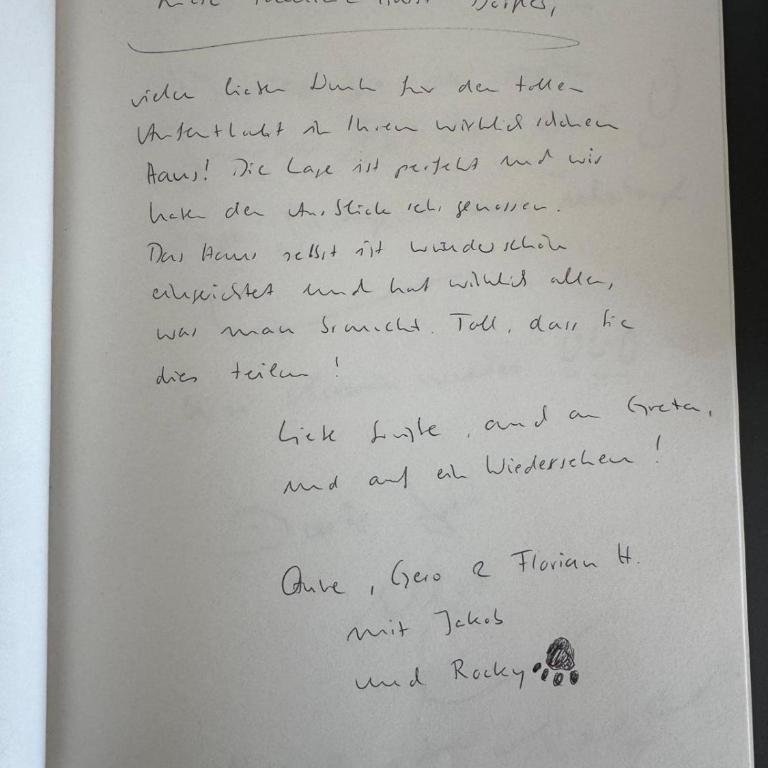 vielen lieben Dank für den tollen
Aufenthalt in Ihrem wirklich schönen
Haus! Die Lage ist perfekt und wir
haben den Ausblick sehr genossen.
Das Haus selbst ist wunderschön
eingerichtet und hat wirklich alles,
was man braucht. Toll, dass Sie
dies teilen!
Liebe Grüße, auch an Greta,
und auf ein Wiedersehen!
, Gero & Florian H.
mit Jakob
und Rocky